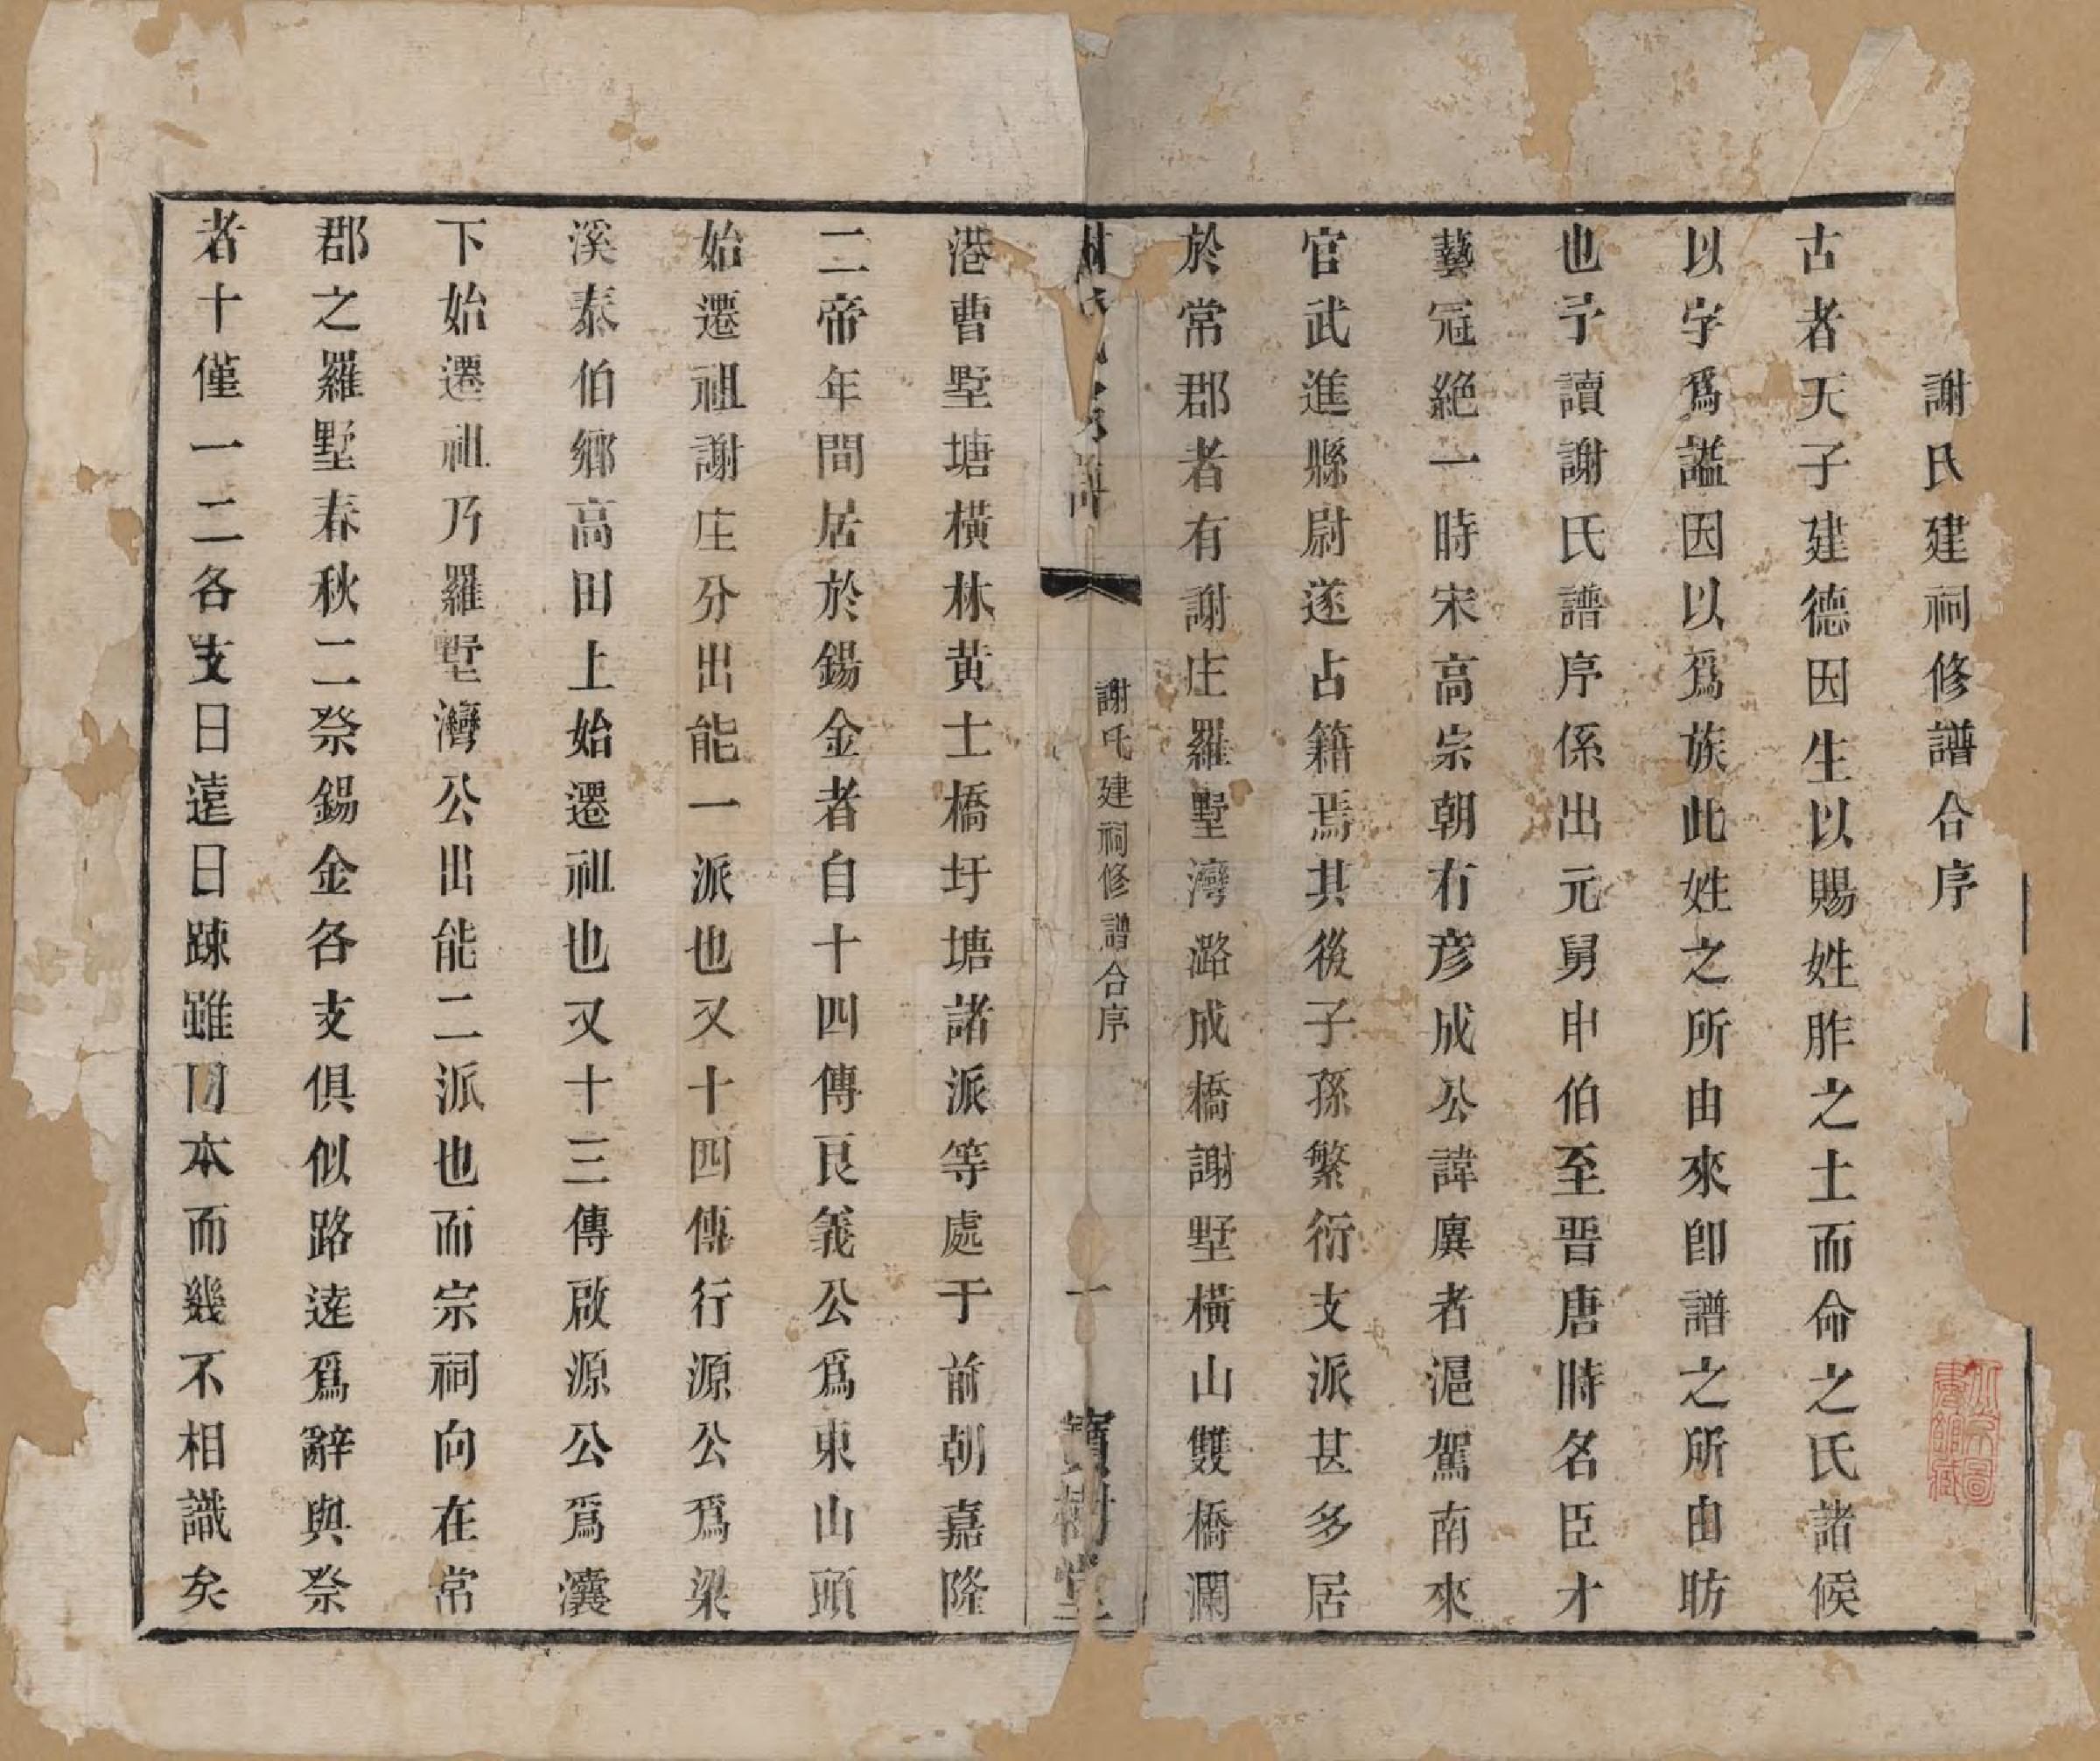 謝氏建祠修譜合序
古者天子建德因生以賜姓胙之土而命之氏諸候
以字爲謚因以爲族此姓之所由來卽譜之所由昉
也予讀謝氏譜序係出元舅申伯至晋唐時名臣才
藝冠絶一時宋高宗朝有彦成公諱廙者滬駕南來
官武進縣尉遂占籍焉其後子孫繁衍支派甚多居
於常郡者有謝庄羅墅灣潞成橋謝墅橫山雙橋瀾
謝氏
譜
謝氏建祠修譜合序
一
寶樹堂
港曹墅塘橫林黄士橋圩塘諸派等處于前朝嘉隆
二帝年間居於錫金者自十四傳艮義公爲東山頭
始遷祖謝庄分出能一派也又十四傳行源公爲梁
溪泰伯鄉高田上始遷祖也又十三傳啟源公爲瀼
下始遷祖乃羅墅灣公出能二派也而宗祠向在常
郡之羅墅春秋二祭錫金各支俱似路逵爲辭與祭
者十僅一二各支日遠日踈雖同本而幾不相識矣
北京圖書館藏